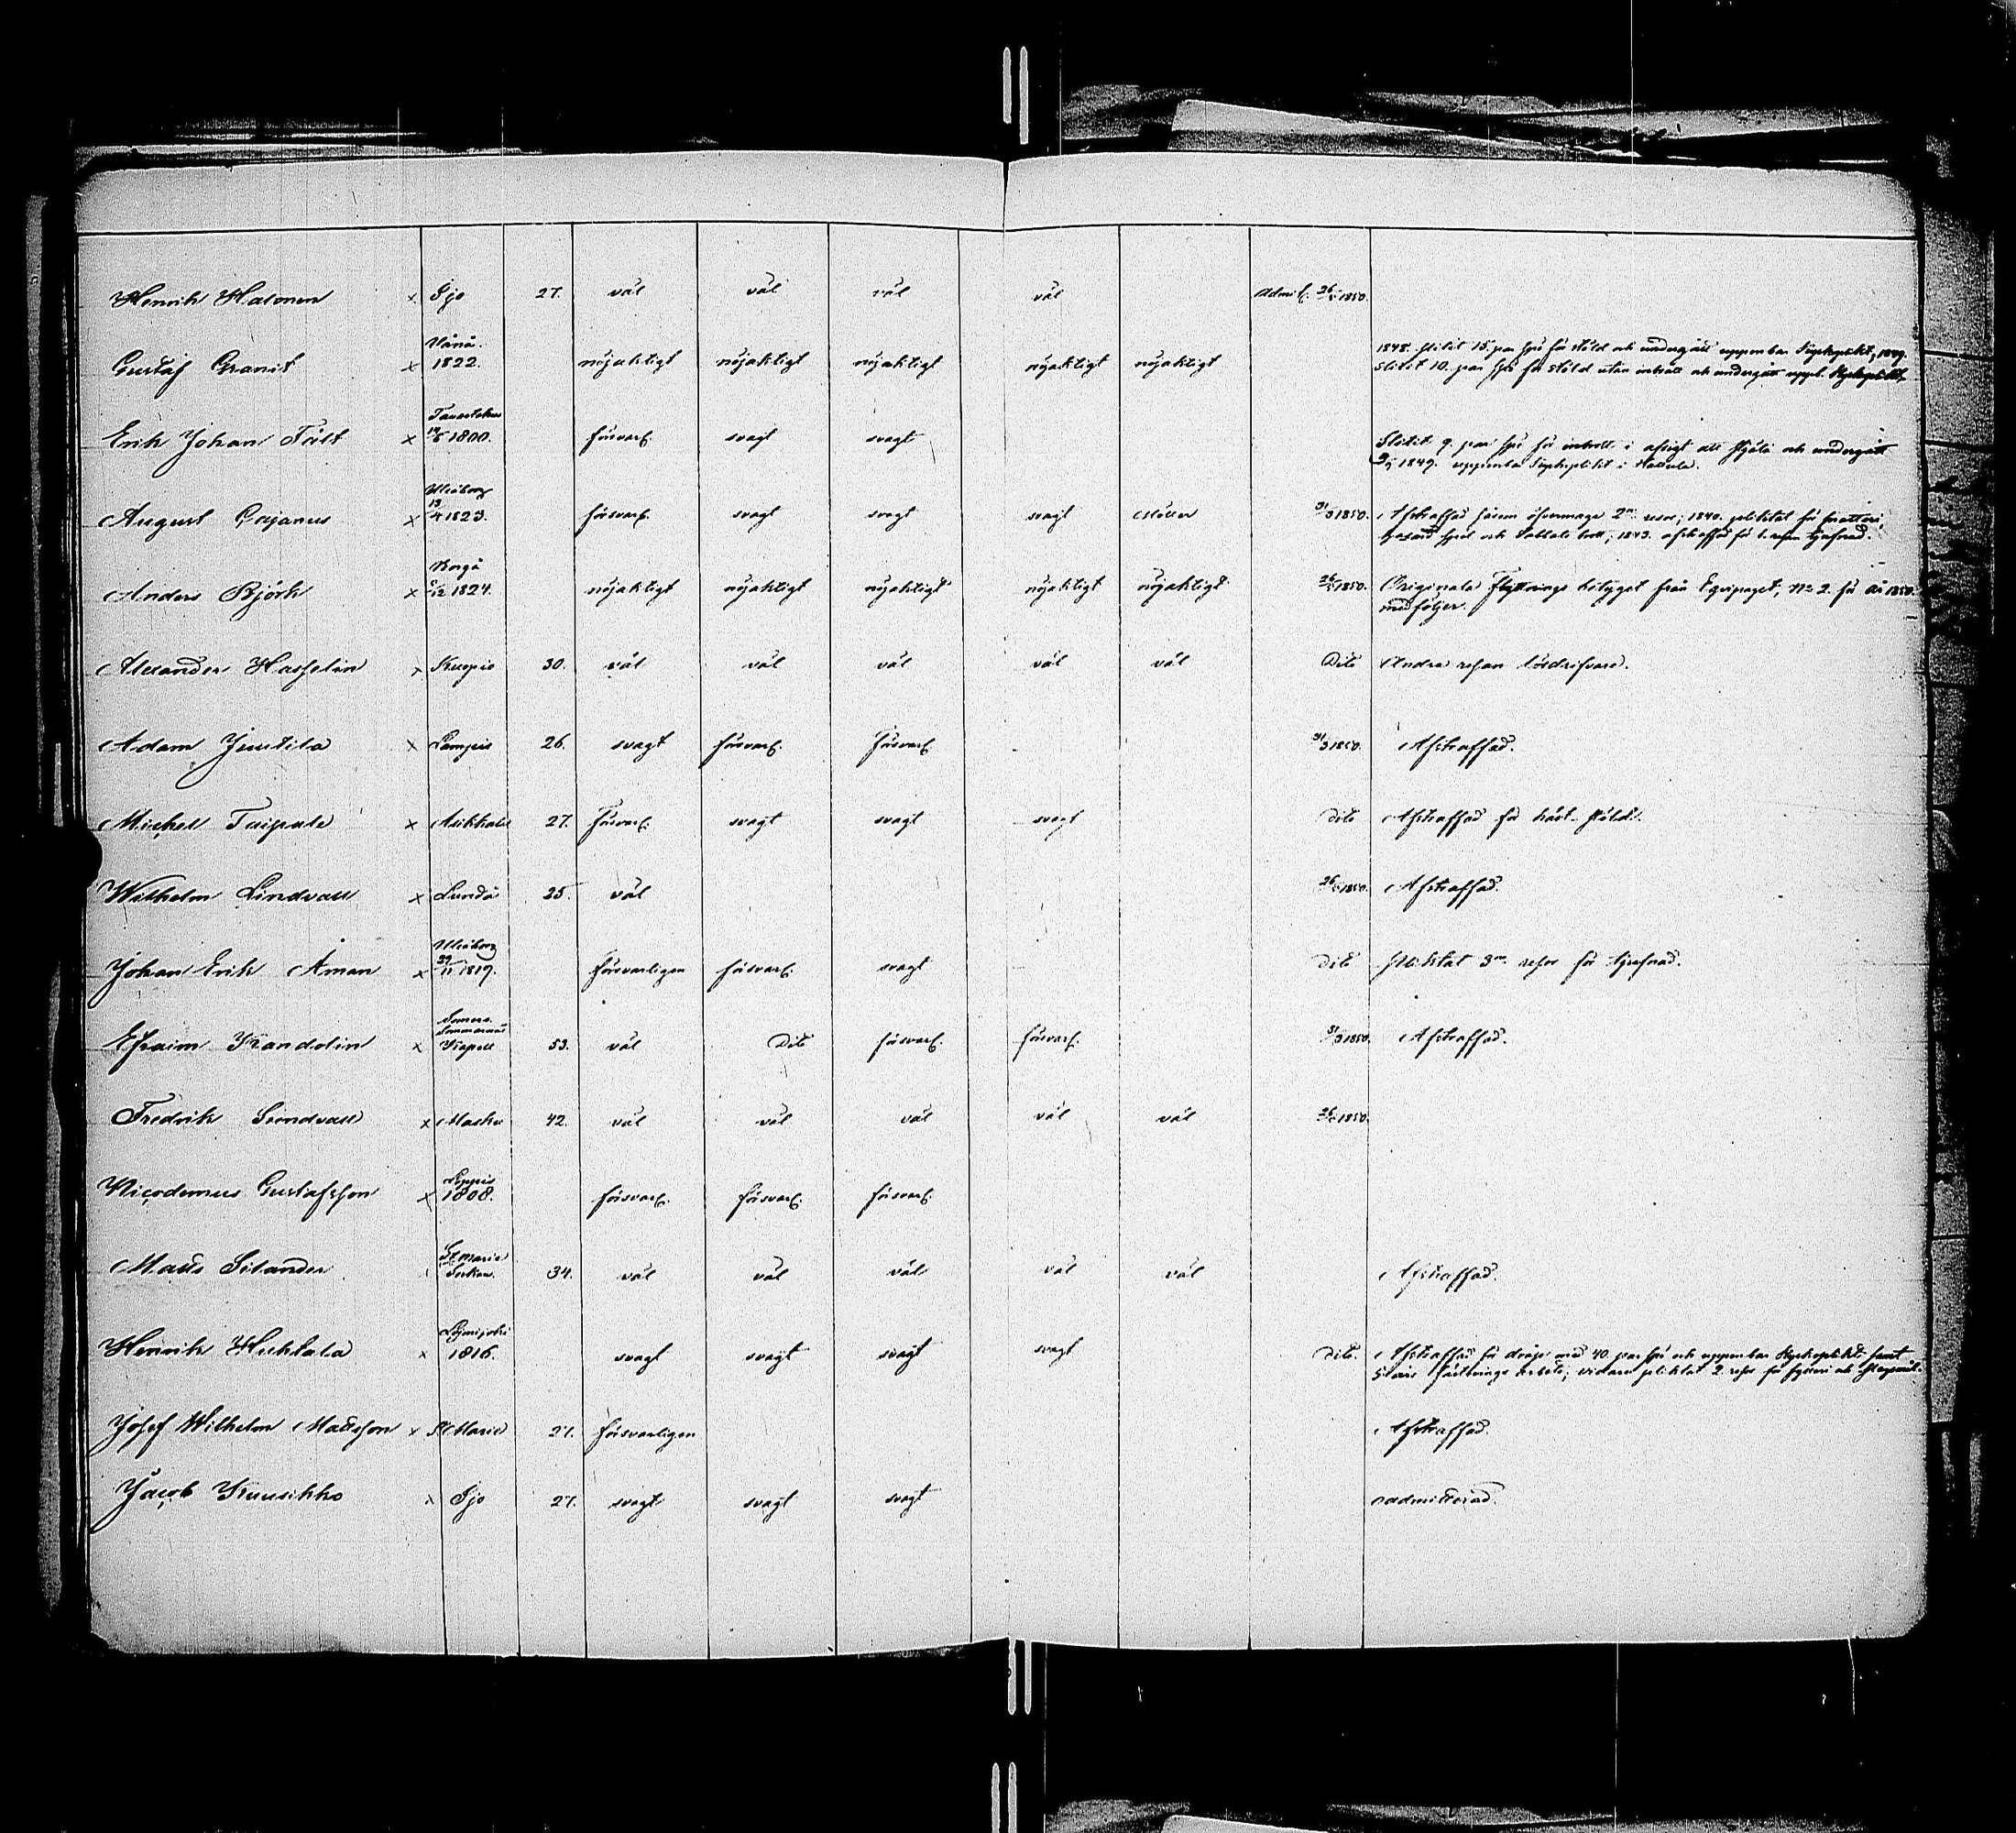 Henrik Halonen x Ijo 27. väl väl väl väl Admit. 26/5 1850.
Gustaf Granit x Vånå. 1822. nöjaktigt nöjaktigt nöjaktigt nöjaktigt nöjaktigt 1848. slitit 15 par spö för stöld och undergått uppenbar Kyrkoplikt, 1849.
slitit 10. par spö för stöld utan inbrott och undergått uppb. Kyrkoplikt.
Erik Johan Tält x Tavastehus 1800. försvarl. svagt svagt Slitit 9. par spö för inbrott i afsigt att stjäla och undergått
1849. uppenbar Kyrkoplikt i Hattula.
August Cajanus x Uleåborg 13/4 1823. försvarl. svagt svagt svagt 31/3 1850. Afstraffad såsom öfvermage 2n resor; 1840. pliktat för snatteri,
1843. afstraffad för 1. resan tjufnad.
Anders Björk x Borgå 1824. nöjaktigt nöjaktigt nöjaktigt nöjaktigt nöjaktigt 26/5 1850. Originala Flyttnings betyget från Equipaget, No 2. för år 1850.
medföljer.
Alexander Hasselin x Kuopio 30. väl väl väl väl väl Dito Andra resan lösdrifvare.
Adam Juutila x Lampis 26. svagt försvarl. försvarl. 31/3 1850. Afstraffad.
Michel Taipale x Asikkala 27. Försvarl. svagt svagt svagt Dito Afstraffad för häst-stöld.
Wilhelm Lindvall x Lundå 25. väl 26/5 1850. Afstraffad.
Johan Erik Åman x Uleåborg 29/11 1819. försvarligen försvarl. svagt Dito pliktat 3ne resor för tjufnad.
Efraim Kandolin x Somero Sommarnäs Kapell 53. väl Dito försvarl. försvarl. 31/3 1850. Afstraffad.
Fredrik Sundvall x Masku 42. väl väl väl väl väl 26/5 1850.
Nicodemus Gustafsson x Loppis 1808. försvarl. försvarl. försvarl.
Matts Silander St Marie Socken. 34. väl väl väl väl väl Afstraffad.
Henrik Huhtala x Lojmijoki 1816. svagt svagt svagt svagt Dito. Afstraffad för dråp med 40. par spö och uppenbar Kyrkoplikt samt
5 års fästnings arbete; vidare pliktat 2. resor för fylleri och slagsmål.
Josef Wilhelm Mattsson x St Marie 27. försvarligen Afstraffad.
Jacob Kuusikko x Ijo 27. svagt svagt svagt admitterad.